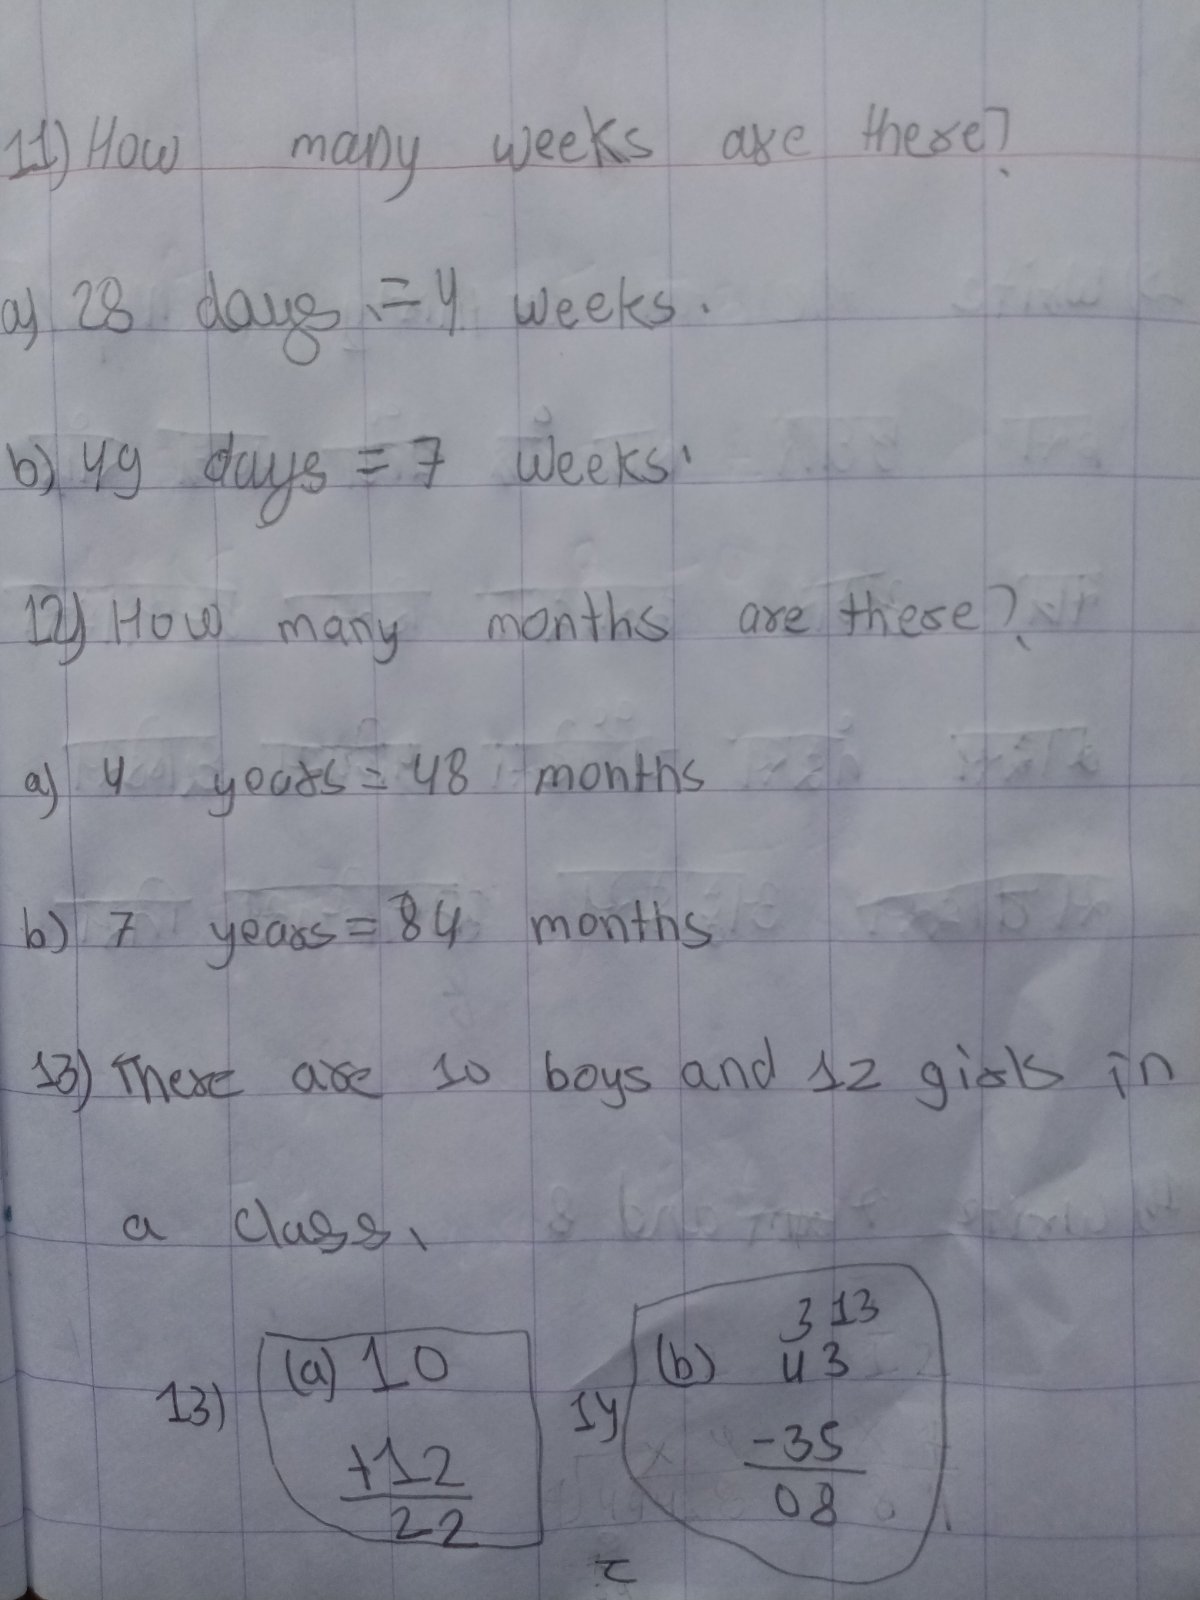 11) How many weeks are there?
a) 28 days = 4 weeks.
b) 49 days = 7 weeks.
12) How many months are these?
a) 4 years = 48 months
b) 7 years = 84 months
13) There are 10 boys and 12 girls in
a class.
13) (a) 10
+12
22
14 (b) 3 13
43
-35
08